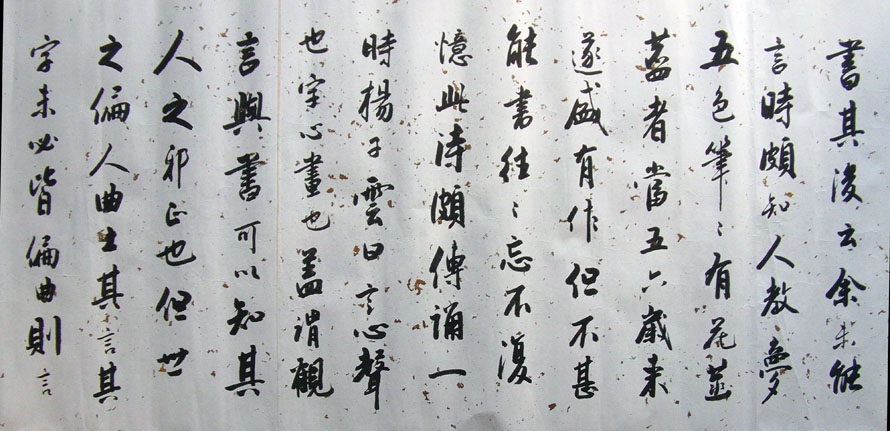 書其後云余未能
言時頗知人教夢
五色筆〻有花並
蒂者當五六歲未
遂盛有作但不甚
能書往〻忘不復
憶此詩頗傳誦一
時楊子雲曰言心聲
也字心畫也蓋謂觀
言與書可以知其
人之邪正也但世
之偏人曲士其言其
字未必皆偏曲則言